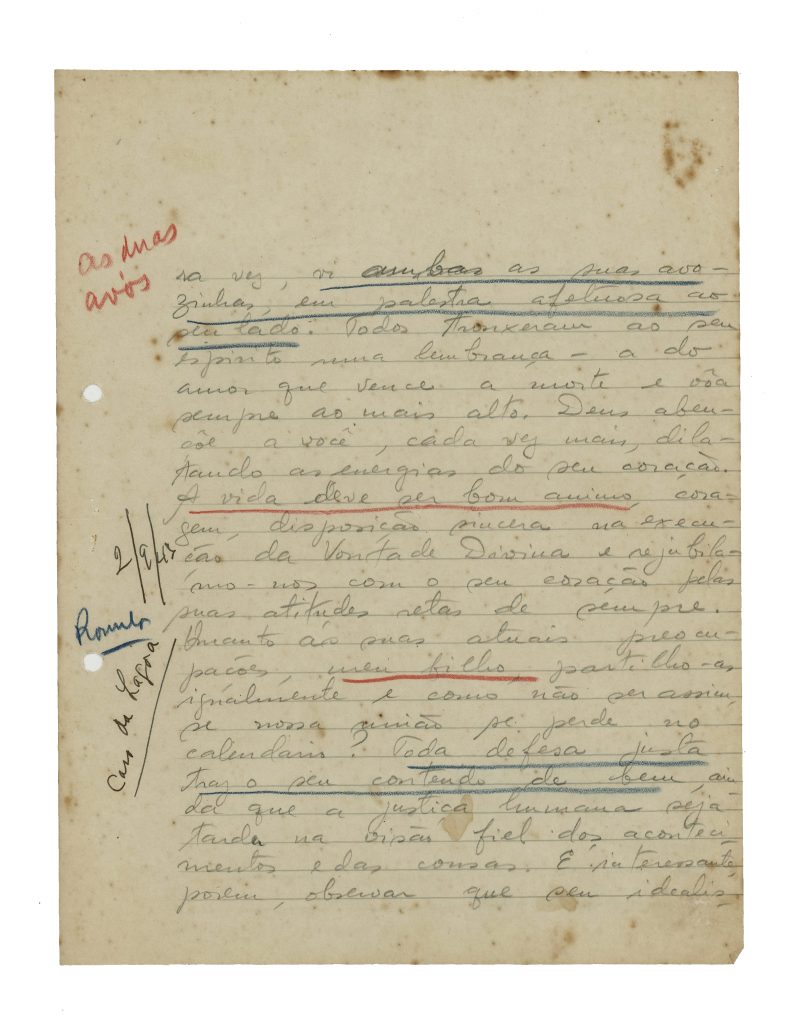 as duas
avós
sa vez, vi ambas as suas avo-
zinhas, em palestra afetuosa ao
seu lado. Todos trouxeram ao seu
espirito uma lembrança - a do
amor que vence a morte e vôa
sempre ao mais alto. Deus aben-
côe a você, cada vez mais, dila-
tando as energias do seu coração.
A vida deve ser bom animo, cora-
gem, disposição sincera na execu-
ção da Vontade Divina e rejubila-
mo-nos com o seu coração pelas
suas atitudes retas de sempre.
Quanto ás suas atuais preocu-
pações, meu filho, partilho-as
igualmente e como não ser assim,
se nossa união se perde no
calendario? Toda defesa justa
traz o seu conteudo de bem, ain
da que a justiça humana seja
tarda na visão fiel dos aconteci
mentos e das cousas. E' interessante,
porem, observar que seu idealis-
2/9/43
Romulo
Caso da Lagoa